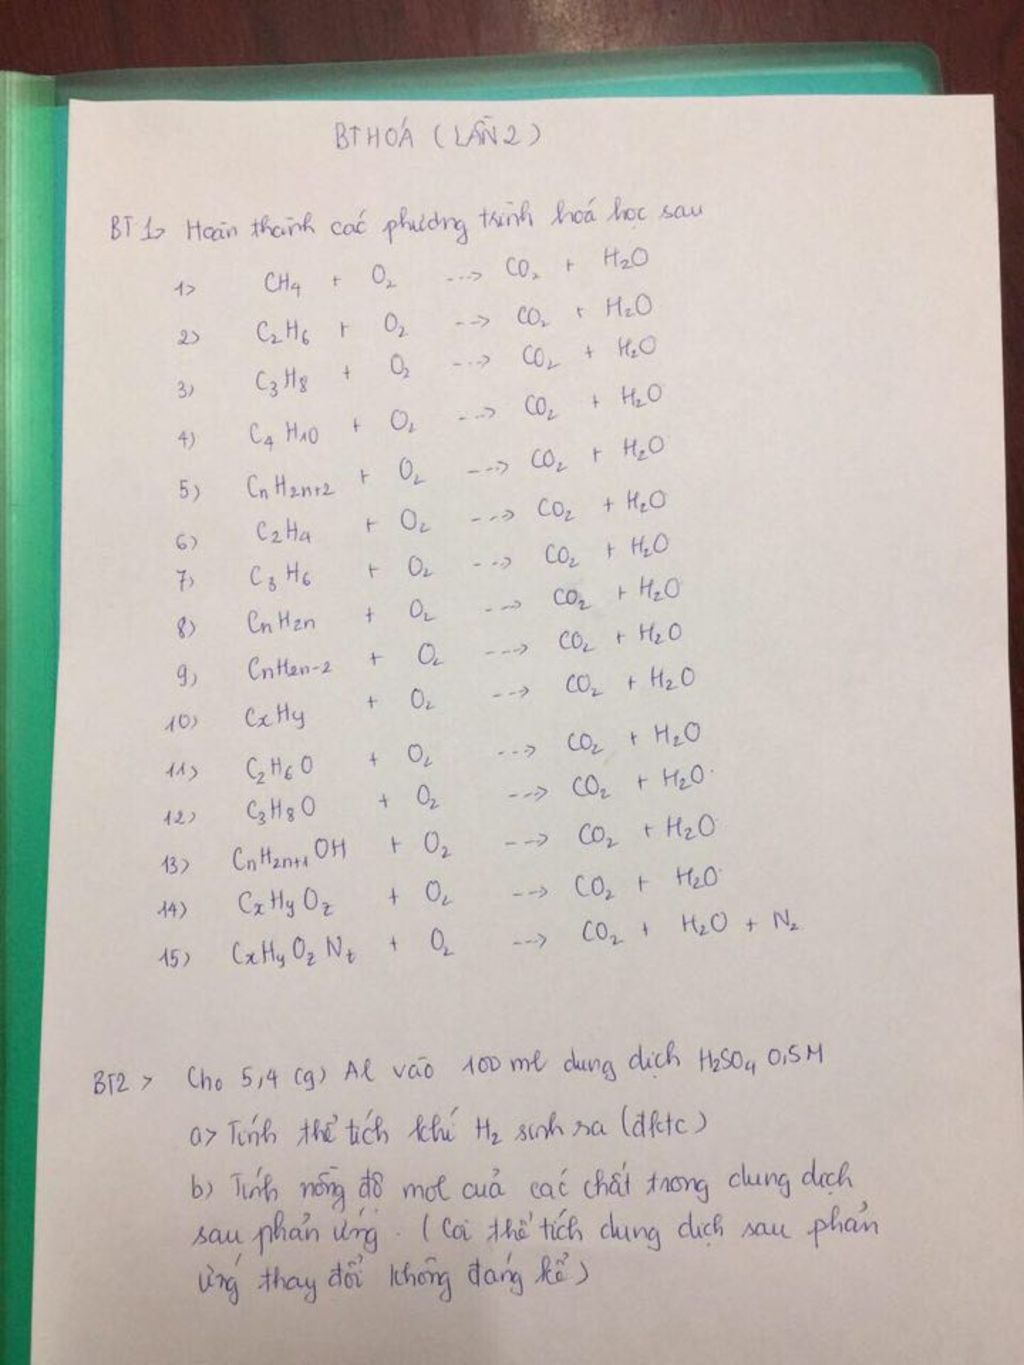 BT HOÁ (LẦN 2)
BT 1> Hoàn thành các phương trình hoá học sau
1> CH4 + O2 ---> CO2 + H2O
2> C2H6 + O2 ---> CO2 + H2O
3) C3H8 + O2 ---> CO2 + H2O
4) C4H10 + O2 ---> CO2 + H2O
5) CnH2n+2 + O2 ---> CO2 + H2O
6) C2H4 + O2 ---> CO2 + H2O
7) C3H6 + O2 ---> CO2 + H2O
8) CnH2n + O2 ---> CO2 + H2O
9) CnH2n-2 + O2 ---> CO2 + H2O
10) CxHy + O2 ---> CO2 + H2O
11) C2H6O + O2 ---> CO2 + H2O
12) C3H8O + O2 ---> CO2 + H2O
13) CnH2n+1OH + O2 ---> CO2 + H2O
14) CxHyOz + O2 ---> CO2 + H2O
15) CxHyOzNt + O2 ---> CO2 + H2O + N2
BT2 > Cho 5,4 (g) Al vào 100 ml dung dịch H2SO4 0,5M
a> Tính thể tích khí H2 sinh ra (đktc)
b) Tính nồng độ mol của các chất trong dung dịch
sau phản ứng. (Coi thể tích dung dịch sau phản
ứng thay đổi không đáng kể)